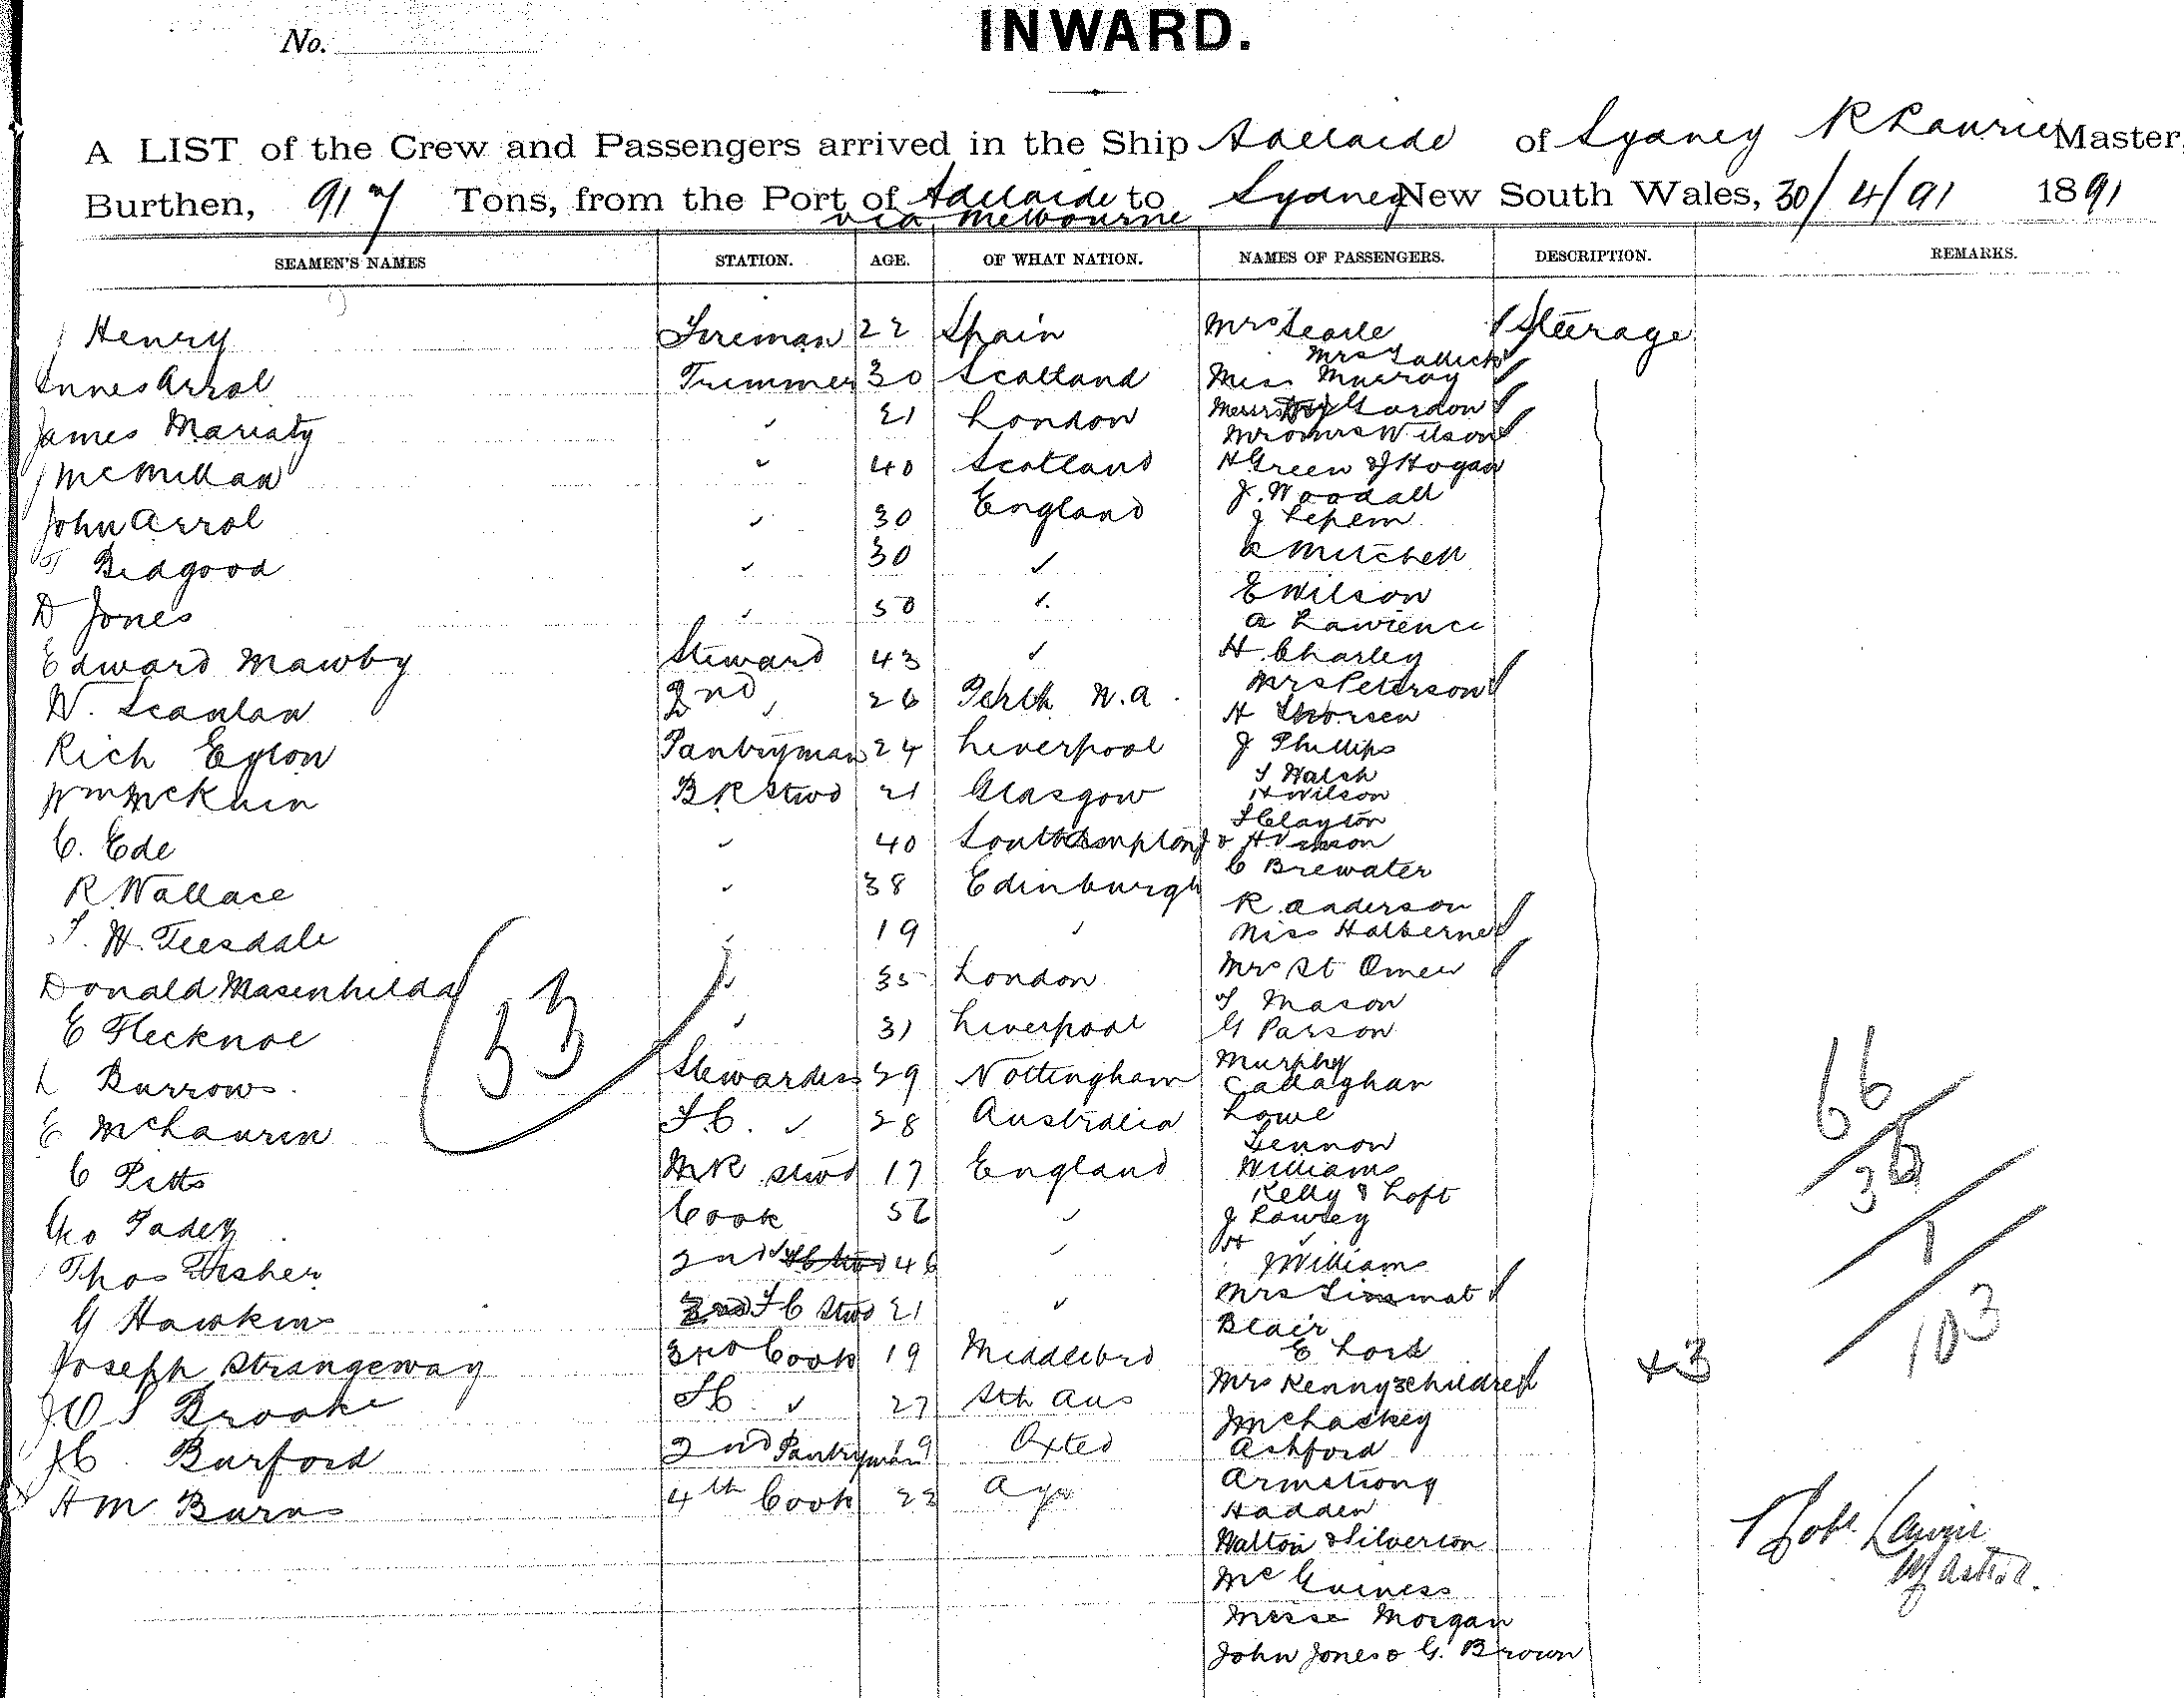 No.
INWARD.
A LIST of the Crew and Passengers arrived in the Ship Adelaide of Sydney R Laurie Master,
Burthen, 917 Tons, from the Port of Adelaide to Sydney New South Wales, 30/4/91 1891
via Melbourne
SEAMEN'S NAMES STATION. AGE. OF WHAT NATION. NAMES OF PASSENGERS. DESCRIPTION. REMARKS.
J Henry Fireman 22 Spain Mrs Searle Steerage
Innes Arrol Trimmer 30 Scotland Miss Murray
James Mariaty ✓ 21 London Gordon
Mr & Mrs Wilson
J McMillan ✓ 40 Scotland H Green & J Hogan
J. Woodall
John Arrol ✓ 30 England J Lepem
Bidgood ✓ 30 ✓ R Mitchell
D Jones ✓ 50 ✓ E Wilson
A Lawrence
Edward Mawby Steward 43 ✓ H. Charley
Mrs Peterson
W. Scanlan 2nd ✓ 26 Perth W.A. H Thorsen
Rich Eglon Pantryman 24 Liverpool J Phillips
T Walsh
Wm McKuin B R Stwd 21 Glasgow H Wilson
F Clayton
C. Ede ✓ 40 Southampton
C Brewater
R. Wallace ✓ 38 Edinburgh R. Anderson
T. H. Teesdale ✓ 19 ✓ Miss Halberne
Donald Masenhilda ✓ 35 London Mrs St Omer
T Mason
E Flecknoe ✓ 31 Liverpool G Parson
33
Murphy
L Burrows. Stewardess 29 Nottingham Callaghan
E McLaurin F.C. ✓ 28 Australia Lowe
Lennon
C Pitts M R Stwd 17 England Williams
Kelly & Loft
Geo Padey Cook 52 ✓ J Lowrey
Thos Fisher 2nd ✓ 46 ✓ J Williams
Mrs
G Hawkins F C Stwd 21 ✓ Blair
Joseph Strangeway 3rd Cook 19 Middlebro E Lord
Mrs Kenny 3 children
J O S Brooke F C. ✓ 27 Sth Aus J McLaskey
J C. Burford 2nd Pantryman 19 Oxted Ashford
A M Burns 4th Cook 22 Ayr Armstrong
Hadden
Walton & Silverton
McGuiness
Messe Morgan
John Jones & G. Brown
66
36
1
103
+3
Robt. Laurie
Master.